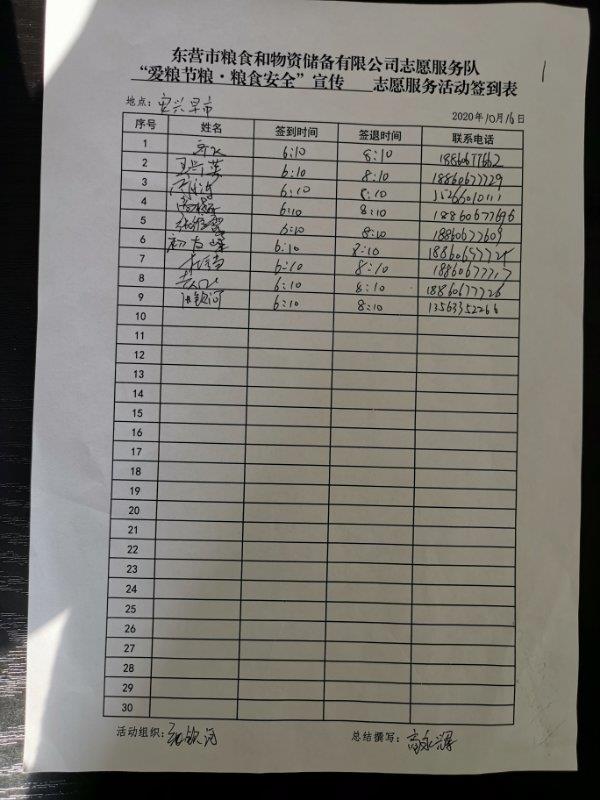 东营市粮食和物资储备有限公司志愿服务队
“爱粮节粮·粮食安全”宣传 志愿服务活动签到表
1
地点：宜兴早市 2020年10月16日
序号 姓名 签到时间 签退时间 联系电话
1 6:10 8:10 18860677662
2 6:10 8:10 18860677729
3 6:10 8:10
4 6:10 8:10 18860677696
5 6:10 8:10 18860677609
6 6:10 8:10
7 6:10 8:10 18860677717
8 6:10 8:10 18860677726
9 6:10 8:10 13563352266
10
11
12
13
14
15
16
17
18
19
20
21
22
23
24
25
26
27
28
29
30
活动组织： 总结撰写：高永翠